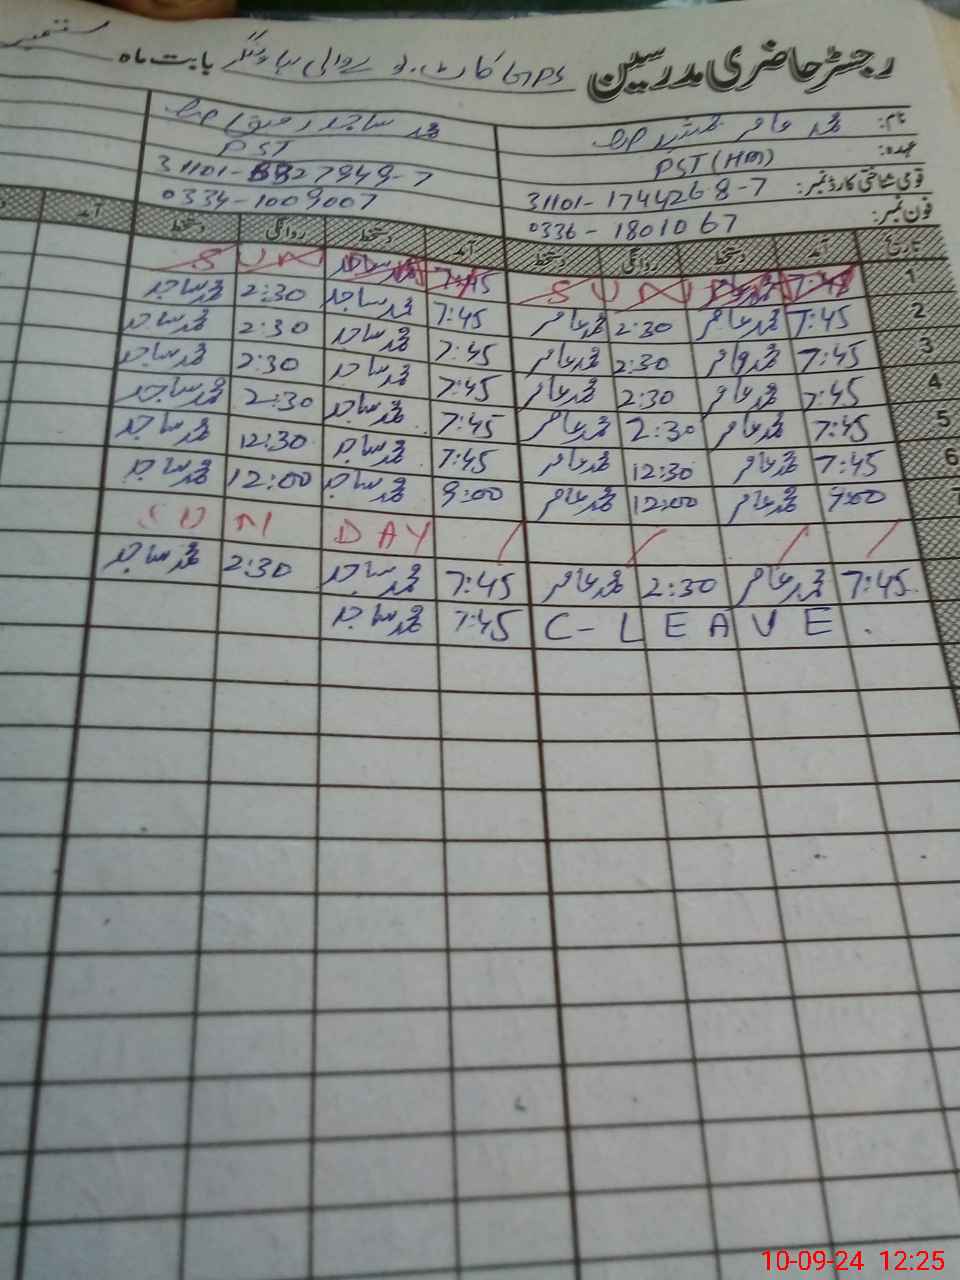 رجسٹر حاضری مدرسین GPS بابت ماہ ستمبر
نام: محمد عامر محمد ساجد
عہدہ: PST (HM) PST
قومی شناختی کارڈ نمبر: 31101-1744268-7 7-
فون نمبر: 0336-1801067 0334-1009007
تاریخ آمد دستخط روانگی دستخط آمد دستخط روانگی دستخط آمد
1 7:45 S U N 7:45 S U N
2 7:45 محمد عامر 2:30 محمد عامر 7:45 محمد ساجد 2:30 محمد ساجد
3 7:45 محمد عامر 2:30 محمد عامر 7:45 محمد ساجد 2:30 محمد ساجد
4 7:45 محمد عامر 2:30 محمد عامر 7:45 محمد ساجد 2:30 محمد ساجد
5 7:45 محمد عامر 2:30 محمد عامر 7:45 محمد ساجد 2:30 محمد ساجد
6 7:45 محمد عامر 12:30 محمد عامر 7:45 محمد ساجد 12:30 محمد ساجد
7 9:00 محمد عامر 12:00 محمد عامر 9:00 محمد ساجد 12:00 محمد ساجد
S U N D A Y
7:45 محمد عامر 2:30 محمد عامر 7:45 محمد ساجد 2:30 محمد ساجد
C- L E A V E . 7:45 محمد ساجد
10-09-24 12:25